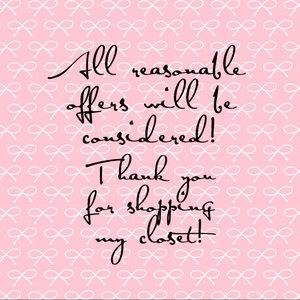 All reasonable
offers will be
considered!
Thank you
for shopping
my closet!